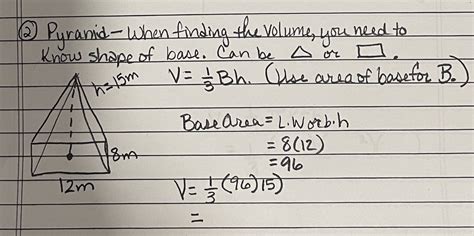 ② Pyramid - When finding the volume, you need to
Know shape of base. Can be △ or ▭.
h=15m
V = 1/3 Bh. (Use area of base for B.)
Base Area = L.W or b.h
= 8(12)
= 96
8m
12m
V = 1/3 (96)15)
=